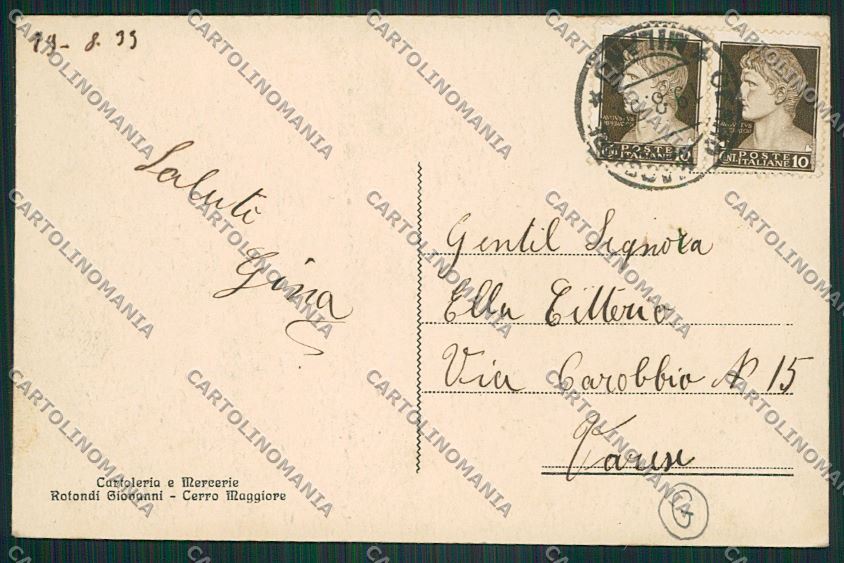 19-8.35
Saluti
Gina
Gentil Signora
Ella Citterio
Via Carobbio N 15
Varese
Cartoleria e Mercerie
Rotondi Giovanni - Cerro Maggiore
POSTE
ITALIANE
CENT. 10
POSTE
ITALIANE
CENT. 10
MILANO
CARTOLINOMANIA